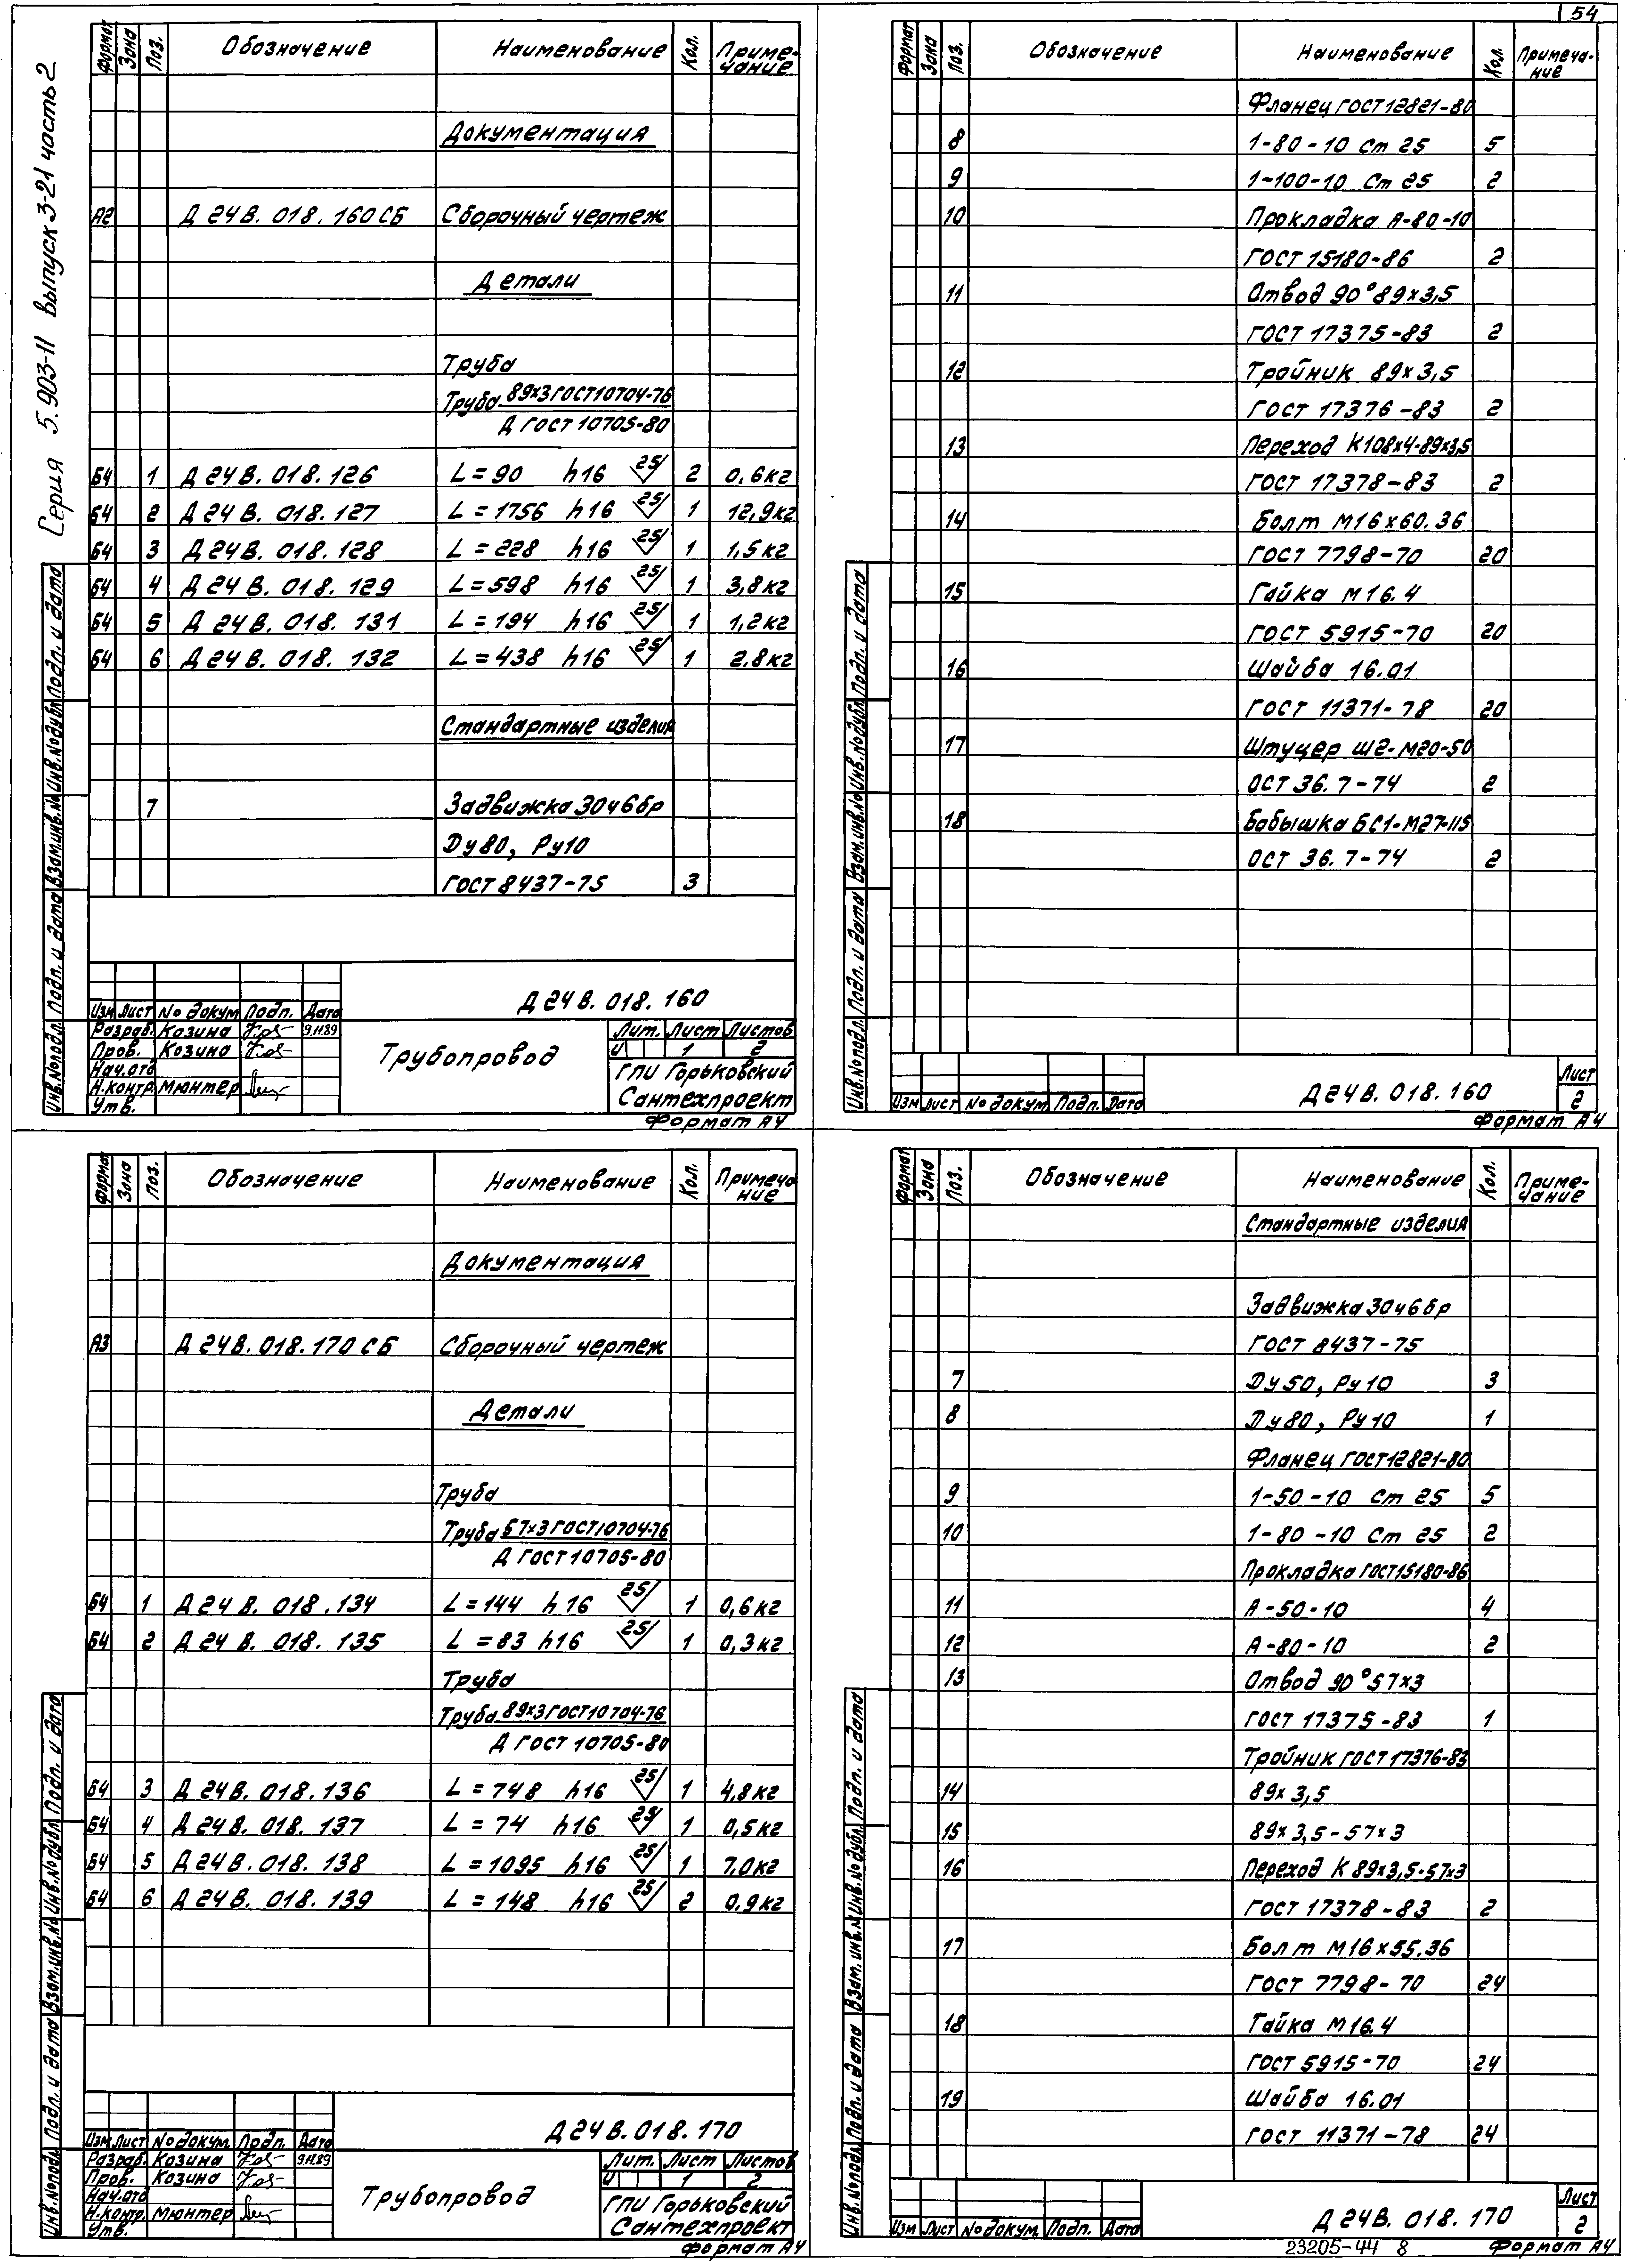 54
Серия 5.903-11 выпуск 3-21 часть 2
Формат Зона Поз. Обозначение Наименование Кол. Примечание
Документация
А2 Д 24 В. 018. 160 СБ Сборочный чертеж
Детали
Труба
Труба 89х3 ГОСТ 10704-76
Д ГОСТ 10705-80
Б4 1 Д 24 В. 018. 126 L = 90 h16 25/ 2 0,6 кг
Б4 2 Д 24 В. 018. 127 L = 1756 h16 25/ 1 12,9 кг
Б4 3 Д 24 В. 018. 128 L = 228 h16 25/ 1 1,5 кг
Б4 4 Д 24 В. 018. 129 L = 598 h16 25/ 1 3,8 кг
Б4 5 Д 24 В. 018. 131 L = 194 h16 25/ 1 1,2 кг
Б4 6 Д 24 В. 018. 132 L = 438 h16 25/ 1 2.8 кг
Стандартные изделия
7 Задвижка 30ч6бр
Ду80, Ру10
ГОСТ 8437-75 3
Инв.№подл. Подп. и дата Взам.инв.№ Инв.№дубл Подп. и дата
Д 24 В. 018. 160
Изм Лист № докум Подп. Дата
Разраб. Козина 9.11.89
Пров. Козина
Нач.отд
Н.контр. Мюнтер
Утв.
Трубопровод
Лит. Лист Листов
И 1 2
ГПИ Горьковский
Сантехпроект
Формат А4
Формат Зона Поз. Обозначение Наименование Кол. Примечание
Фланец ГОСТ 12821-80
8 1-80-10 Ст 25 5
9 1-100-10 Ст 25 2
10 Прокладка А-80-10
ГОСТ 15180-86 2
11 Отвод 90° 89х3,5
ГОСТ 17375-83 2
12 Тройник 89х3,5
ГОСТ 17376-83 2
13 Переход К108х4-89х3,5
ГОСТ 17378-83 2
14 Болт М16х60.36
ГОСТ 7798-70 20
15 Гайка М16.4
ГОСТ 5915-70 20
16 Шайба 16.01
ГОСТ 11371-78 20
17 Штуцер Ш2-М20-50
ОСТ 36.7-74 2
18 Бобышка БС1-М27-115
ОСТ 36.7-74 2
Инв.№подл. Подп. и дата Взам.инв.№ Инв.№дубл Подп. и дата
Изм Лист № докум. Подп. Дата
Д 24 В. 018. 160
Лист
2
Формат А4
Формат Зона Поз. Обозначение Наименование Кол. Примечание
Документация
А3 Д 24 В. 018. 170 СБ Сборочный чертеж
Детали
Труба
Труба 57х3 ГОСТ 10704-76
Д ГОСТ 10705-80
Б4 1 Д 24 В. 018. 134 L = 144 h16 25/ 1 0,6 кг
Б4 2 Д 24 В. 018. 135 L = 83 h16 25/ 1 0,3 кг
Труба
Труба 89х3 ГОСТ 10704-76
Д ГОСТ 10705-80
Б4 3 Д 24 В. 018. 136 L = 748 h16 25/ 1 4,8 кг
Б4 4 Д 24 В. 018. 137 L = 74 h16 25/ 1 0,5 кг
Б4 5 Д 24 В. 018. 138 L = 1095 h16 25/ 1 7,0 кг
Б4 6 Д 24 В. 018. 139 L = 148 h16 25/ 2 0,9 кг
Инв.№подл. Подп. и дата Взам.инв.№ Инв.№дубл Подп. и дата
Д 24 В. 018. 170
Изм Лист № докум. Подп. Дата
Разраб. Козина 9.11.89
Пров. Козина
Нач.отд
Н.контр. Мюнтер
Утв.
Трубопровод
Лит. Лист Листов
И 1 2
ГПИ Горьковский
Сантехпроект
Формат А4
Формат Зона Поз. Обозначение Наименование Кол. Примечание
Стандартные изделия
Задвижка 30ч6бр
ГОСТ 8437-75
7 Ду50, Ру10 3
8 Ду80, Ру10 1
Фланец ГОСТ 12821-80
9 1-50-10 Ст 25 5
10 1-80-10 Ст 25 2
Прокладка ГОСТ 15180-86
11 А-50-10 4
12 А-80-10 2
13 Отвод 90° 57х3
ГОСТ 17375-83 1
Тройник ГОСТ 17376-83
14 89х3,5
15 89х3,5-57х3
16 Переход К 89х3,5-57х3
ГОСТ 17378-83 2
17 Болт М16х55.36
ГОСТ 7798-70 24
18 Гайка М16.4
ГОСТ 5915-70 24
19 Шайба 16.01
ГОСТ 11371-78 24
Инв.№подл. Подп. и дата Взам.инв.№ Инв.№дубл Подп. и дата
Изм Лист № докум. Подп. Дата
Д 24 В. 018. 170
Лист
2
23205-44 8
Формат А4